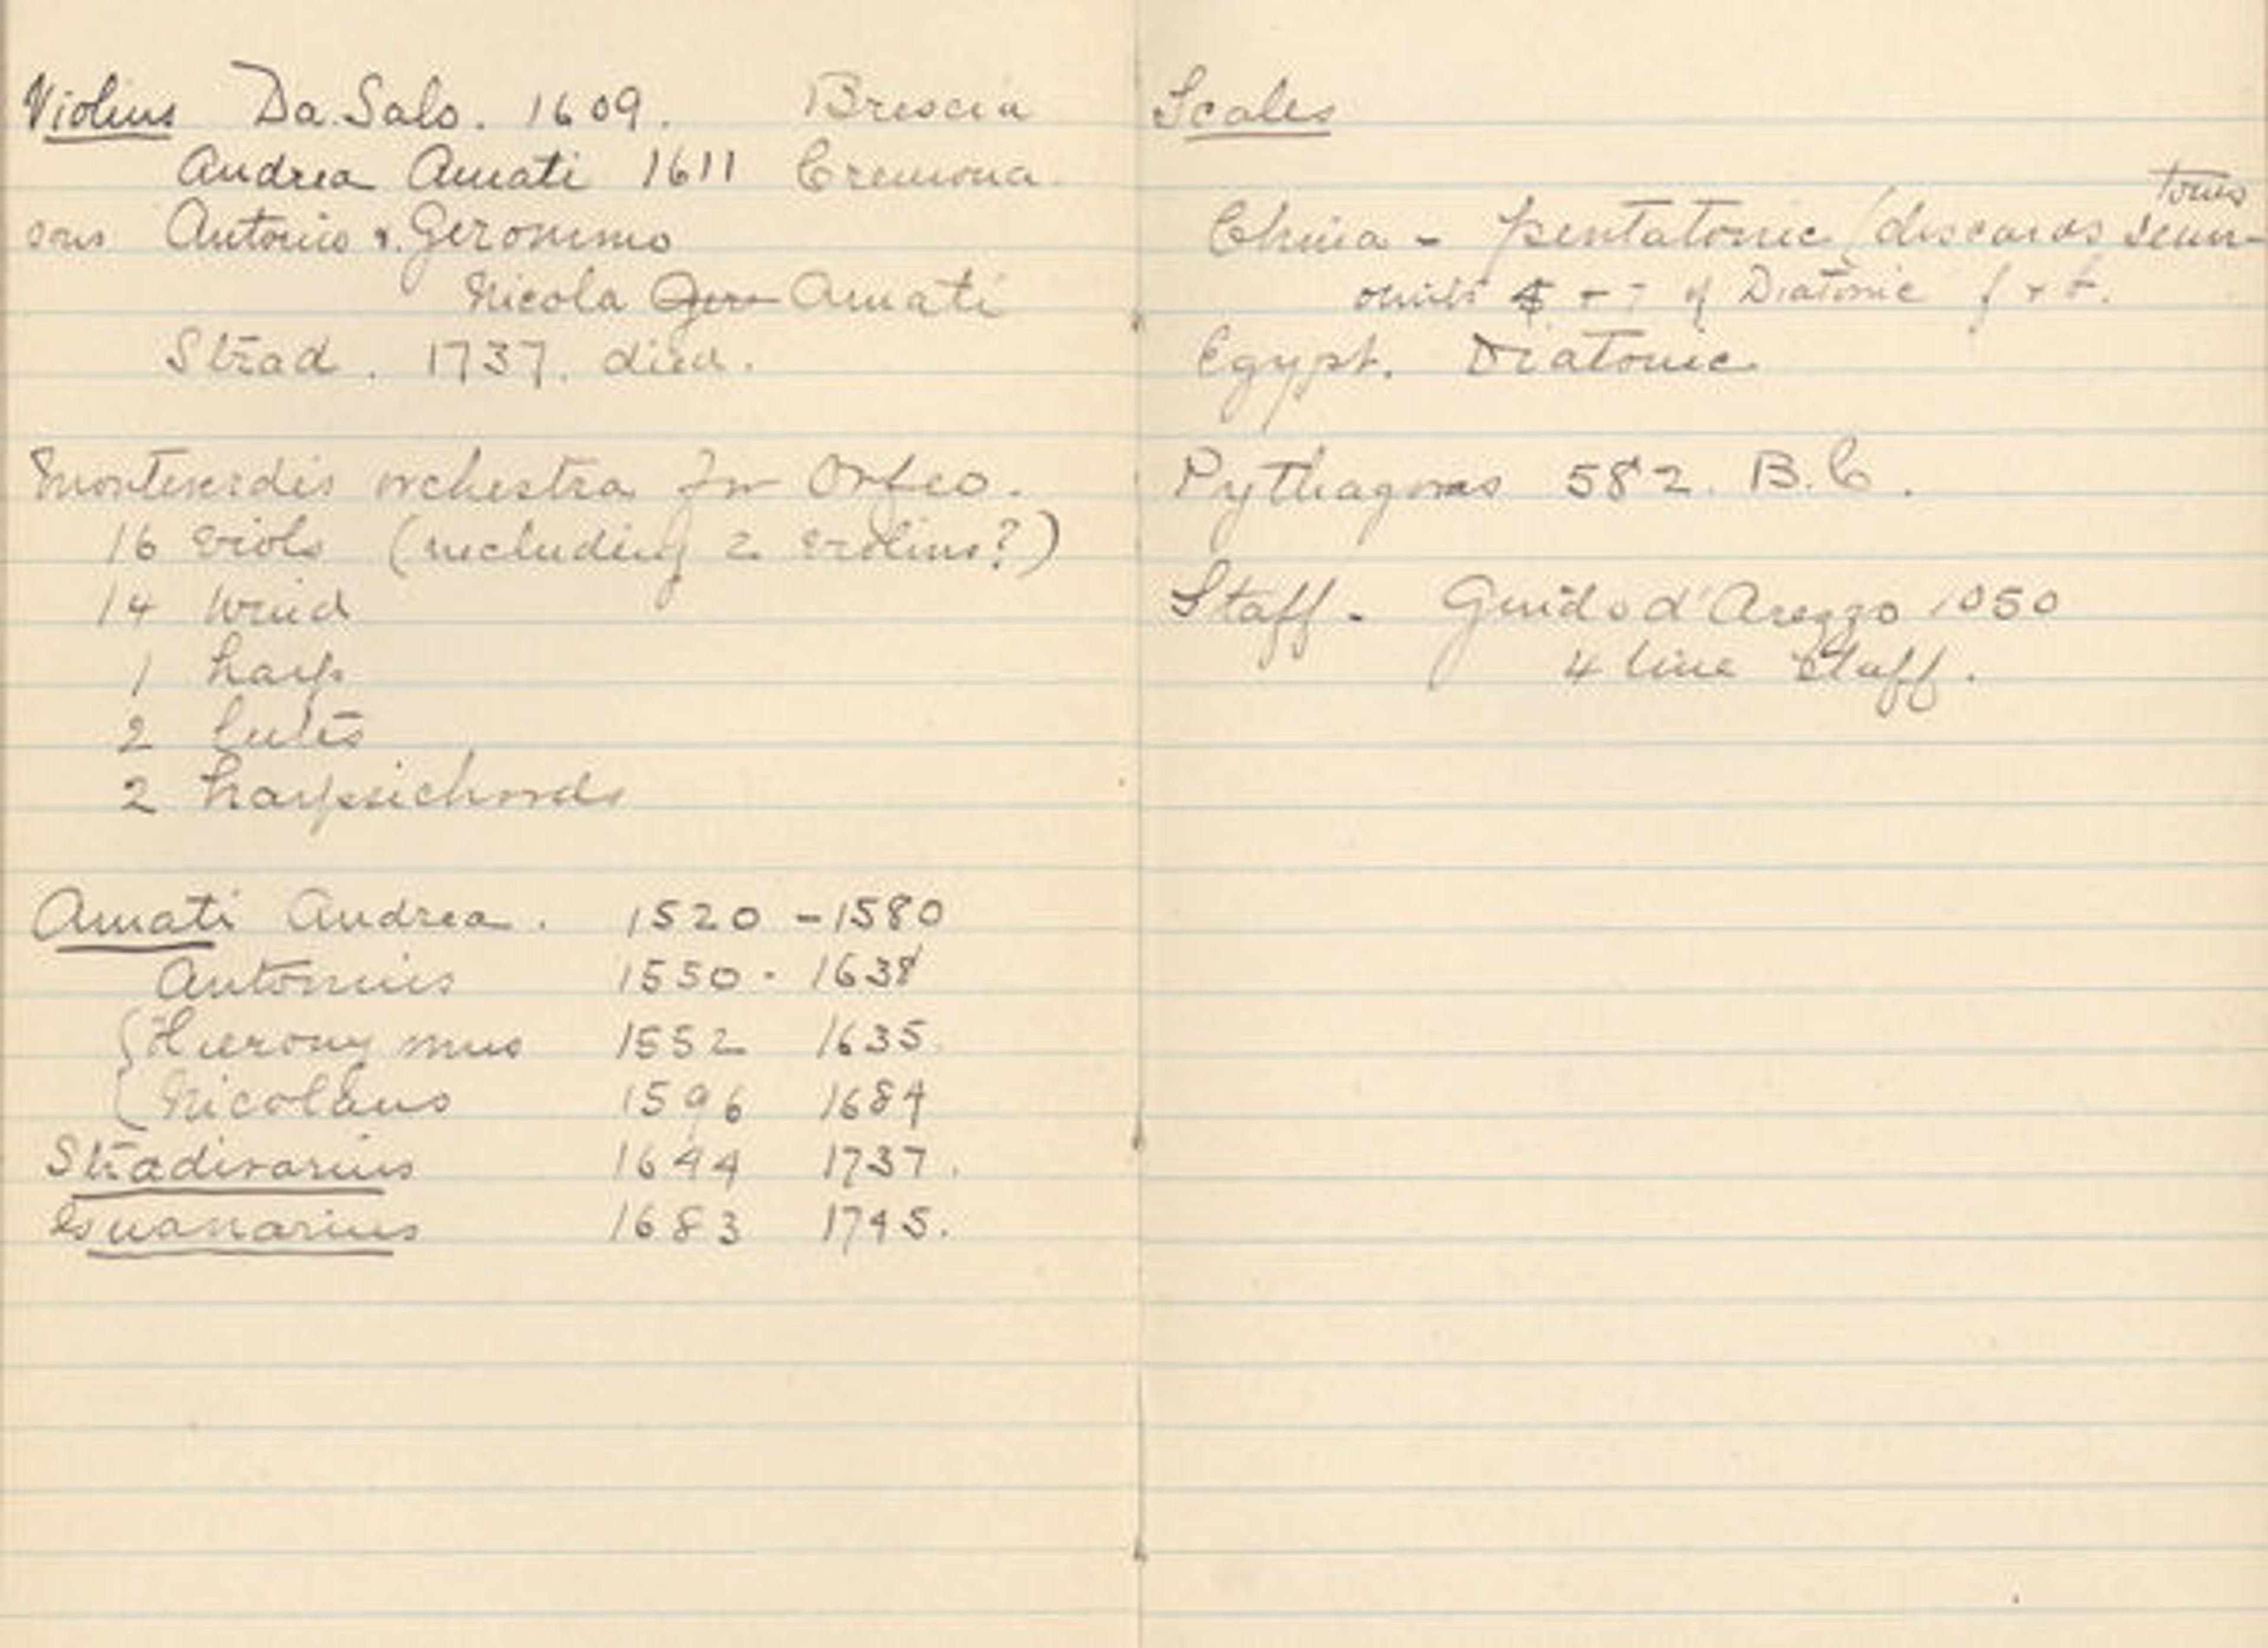 Violins Da Salo. 1609. Brescia
Andrea Amati 1611 Cremona.
sons Antonio & Geronimo
Nicola Amati
Strad. 1737. died.
Monteverdis orchestra for Orfeo.
16 viols (including 2 violins?)
14 wind
1 harp
2 lutes
2 harpsichords
Amati Andrea. 1520 - 1580
Antonius 1550 - 1638
{ Hieronymus 1552 1635
{ Nicolaus 1596 1684
Stradivarius 1644 1737.
Guanarius 1683 1745.
Scales
tones
China - pentatonic (discards semi-
omits 4 + 7 of Diatonic f + b.
Egypt. Diatonic
Pythagoras 582. B.C.
Staff - Guido d'Arezzo 1050
4 line staff.